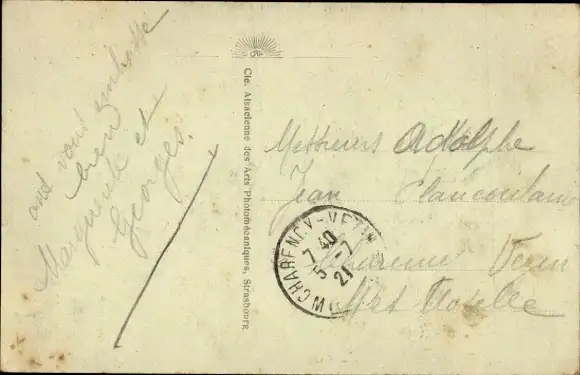 vous embrasse
bien
Marguerite et
Georges.
Cie. Alsacienne des Arts Photomécaniques, Strasbourg.
Messieurs Adolphe
Jean
CHARENCY-VEZIN
7 40
5 -7
21
Charence Vezin
Met Moselle